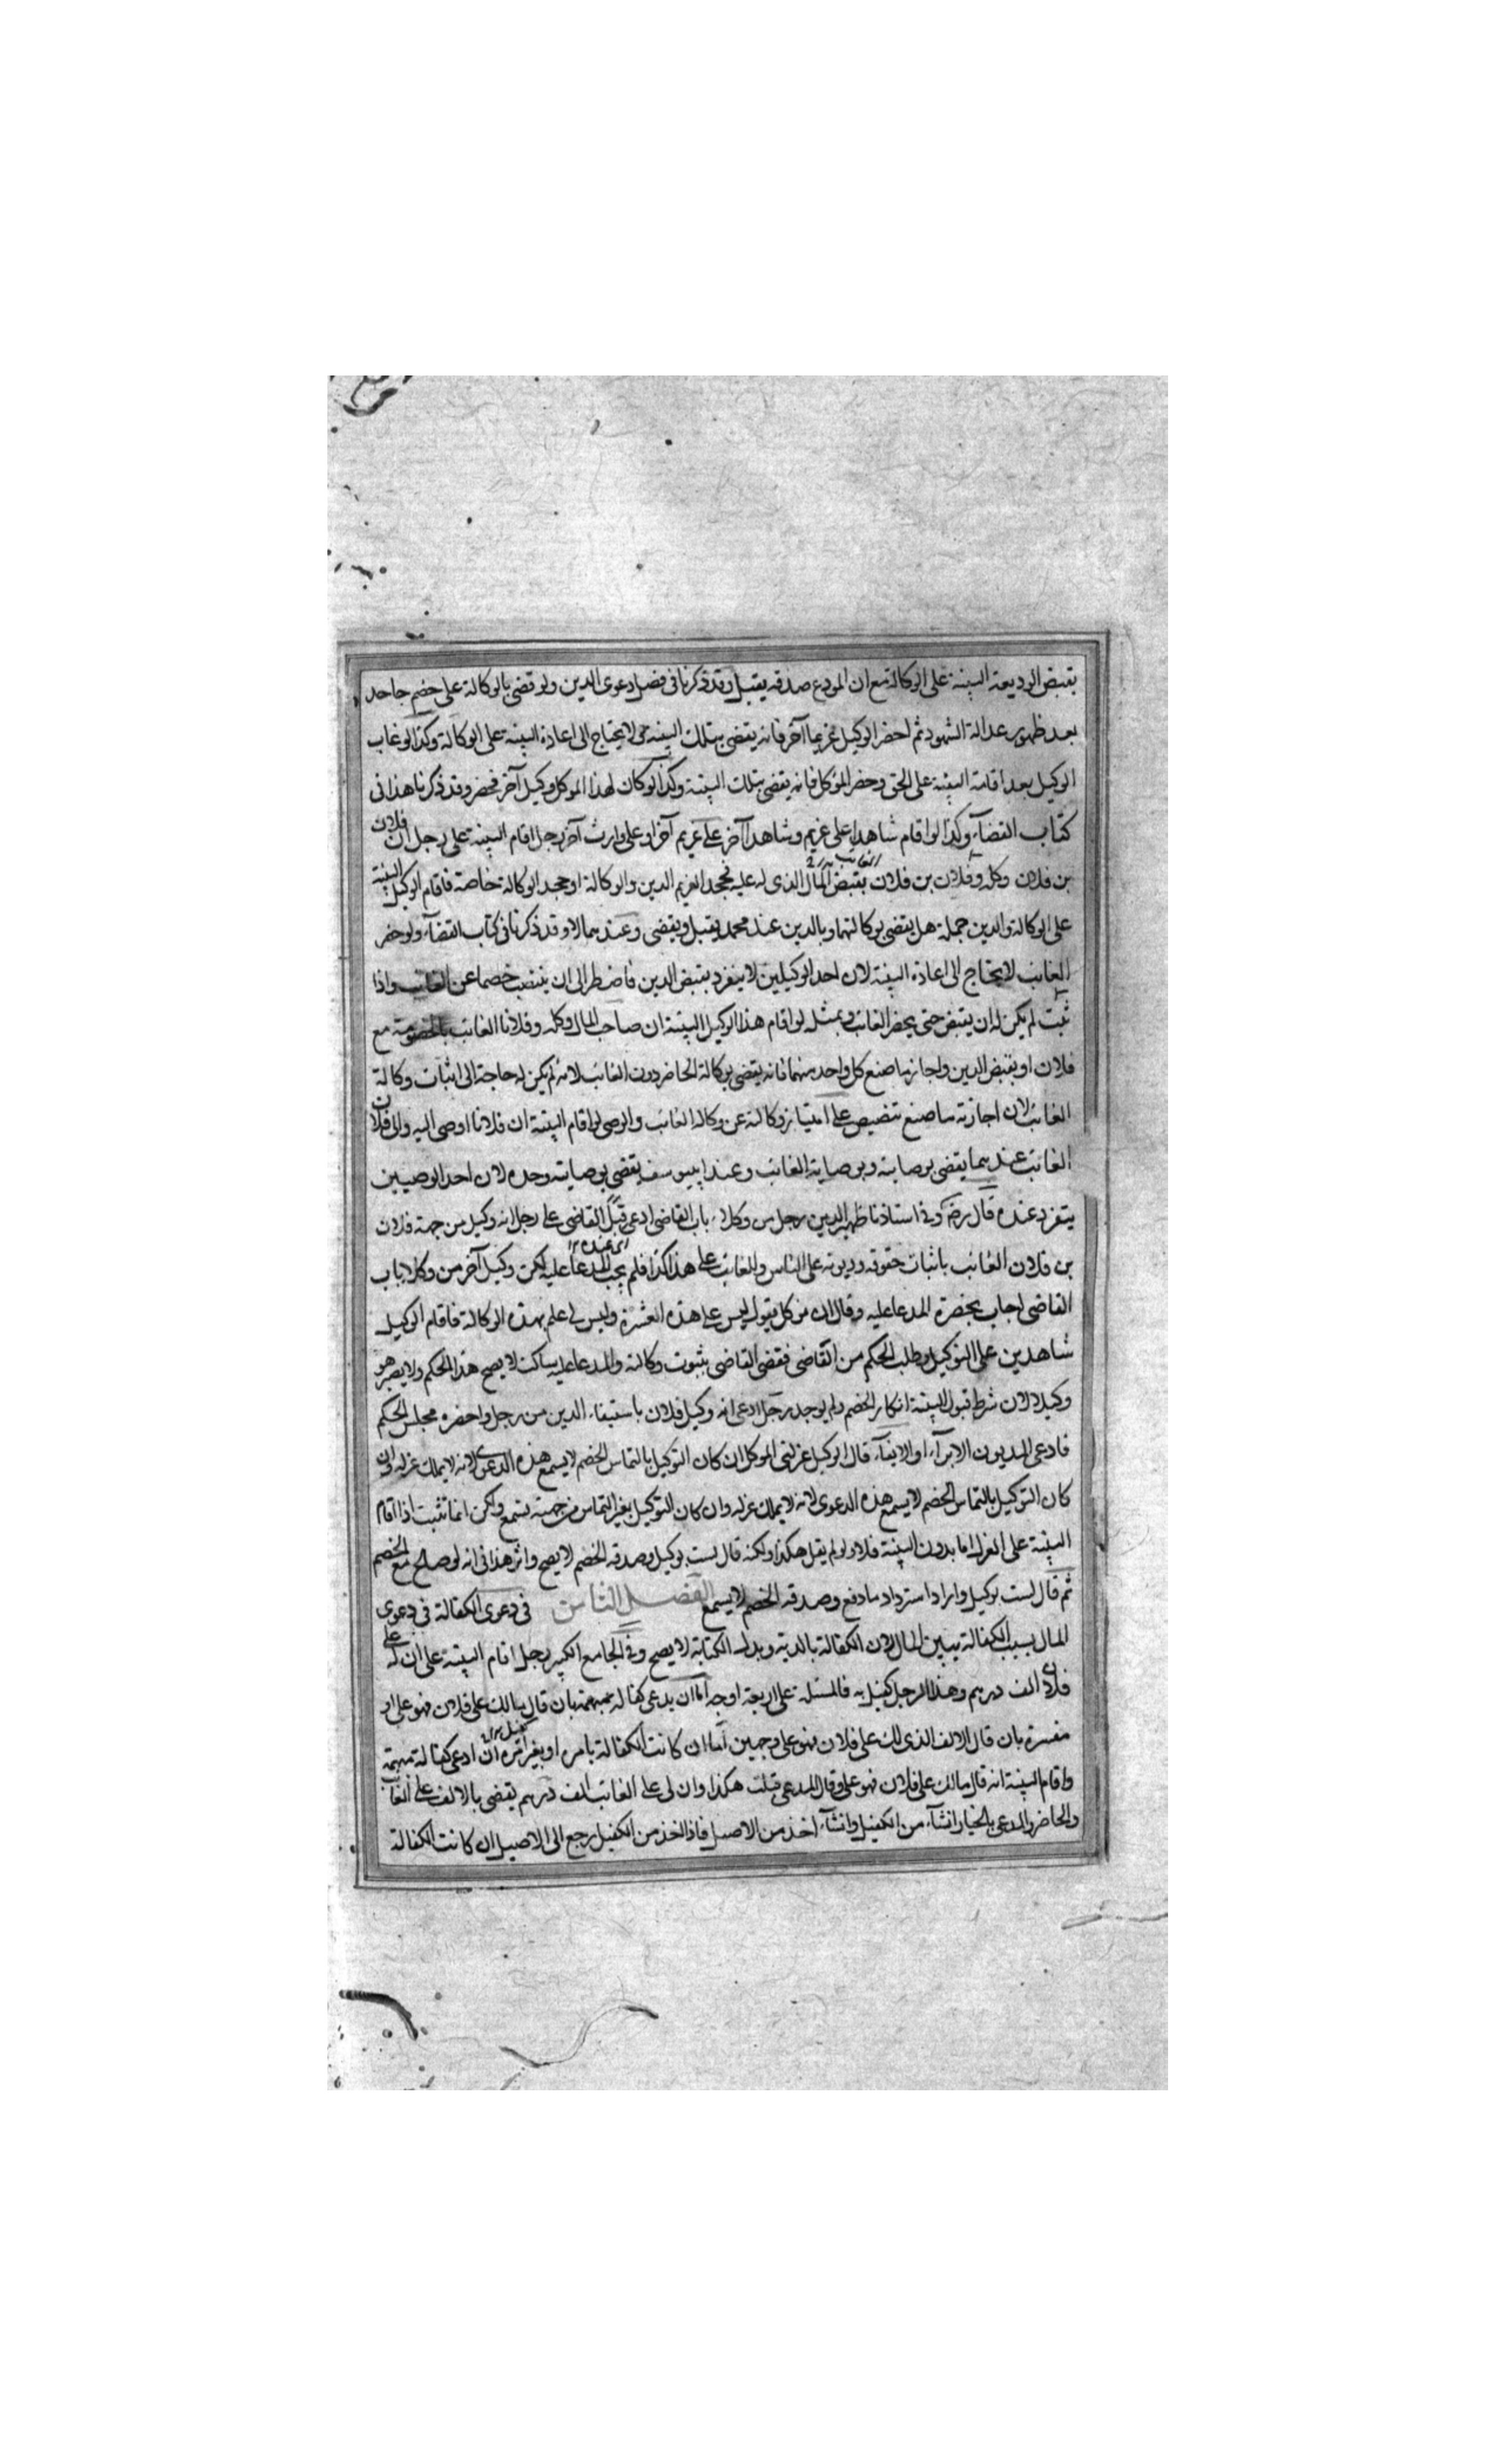 بقبض الوديعة البينة على الوكالة مع ان المودع صدقه يقبل وقد ذكرنا في فصل دعوى الدين ولو قضى بالوكالة على خصم جاحد
بعد ظهور عدالة الشهود ثم احضر الوكيل غريما آخر فانه يقضى بتلك البينة حتى لا يحتاج الى اعادة البينة على الوكالة وكذا لو غاب
الوكيل بعد اقامة البينة على الحق وحضر الموكل فانه يقضى بتلك البينة وكذا لو كان لهذا الموكل وكيل آخر فحضر وقد ذكرنا هذا في
كتاب القضآء وكذا لو اقام شاهدا على غريم وشاهدا آخر على غريم آخر او على وارث آخر رجل اقام البينة على رجل ان فلان
بن فلان وكله وفلان بن فلان الغائب بقبض المال الذى له عليه فجحد الغريم الدين والوكالة او جحد الوكالة خاصة فاقام الوكيل البينة
على الوكالة والدين جملة هل يقضى بوكالتهما وبالدين عند محمد يقبل ويقضى وعندهما لا وقد ذكرنا في كتاب القضآء ولو حضر
الغائب لا يحتاج الى اعادة البينة لان احد الوكيلين لا ينفرد بقبض الدين فاضطر الى ان ينتصب خصما عن الغائب واذا
ثبت لم يكن له ان يقبض حتى يحضر الغائب وبمثله لو اقام هذا الوكيل البينة ان صاحب المال وكله وفلانا الغائب بالخصومة مع
فلان او بقبض الدين واجاز ما صنع كل واحد منهما فانه يقضى بوكالة الحاضر دون الغائب لانه لم يكن له حاجة الى اثبات وكالة
الغائب لان اجازته ما صنع تنصيص على امتياز وكالته عن وكالة الغائب والوصى لو اقام البينة ان فلانا اوصى اليه والى فلان
الغائب عندهما يقضى بوصايته وبوصاية الغائب وعند ابييوسف يقضى بوصايته وحده لان احد الوصيين
يتفرد عنده قال رضه وفى استاذنا ظهير الدين رجل من وكلاء باب القاضى ادعى قبل القاضى على رجل انه وكيل من جهة فلان
بن فلان الغائب باثبات حقوقه وديونه على الناس وللغائب على هذا كذا فلم يجب المدعا عليه لكن وكيل آخر من وكلا باب
القاضى اجاب بحضرة المدعا عليه وقال ان موكلى يقول ليس على هذه العشرة وليس لى علم بهذه الوكالة فاقام الوكيل
شاهدين على التوكيل وطلب الحكم من القاضى فقضى القاضى بثبوت وكالته والمدعا عليه ساكت لا يصح هذا الحكم ولا يصير هو
وكيلا لان شرط قبول البينة انكار الخصم ولم يوجد رجل ادعى انه وكيل فلان باستيفاء الدين من رجل واحضره مجلس الحكم
فادعى المديون الابرآء او الايفآء قال الوكيل عزلنى الموكل ان كان التوكيل بالتماس الخصم لا يسمع هذه الدعوى لانه لا يملك عزله وان
كان التوكيل بالتماس الخصم لا يسمع هذه الدعوى لانه لا يملك عزله وان كان التوكيل بغير التماس من جهته يسمع ولكن انما تثبت اذا اقام
البينة على العزل اما بدون البينة فلا ولو لم يقل هكذا ولكنه قال لست بوكيل وصدقه الخصم لا يصح واثر هذا في انه لو صالح مع الخصم
ثم قال لست بوكيل واراد استرداد ما دفع وصدقه الخصم لا يسمع الفصل الثامن في دعوى الكفالة في دعوى
المال بسبب الكفالة يبين المال لان الكفالة بالدية وبدل الكتابة لا يصح وفى الجامع الكبير رجل اقام البينة على ان له على
فلان الف درهم وهذا الرجل كفيل به فالمسئلة على اربعة اوجه اما ان يدعى كفالة مبهمة بان قال ما لك على فلان فهو على او
مفسرة بان قال الالف الذى لك على فلان فهو على وجهين اما ان كانت الكفالة بامره او بغير امره ان ادعى كفالة مبهمة
واقام البينة انه قال ما لك على فلان فهو على وقال المدعى قبلت هكذا وان لى على الغائب الف درهم يقضى بالالف على الغائب
والحاضر والمدعى بالخيار ان شآء من الكفيل وان شآء اخذ من الاصيل فاذا اخذ من الكفيل رجع الى الاصيل ان كانت الكفالة